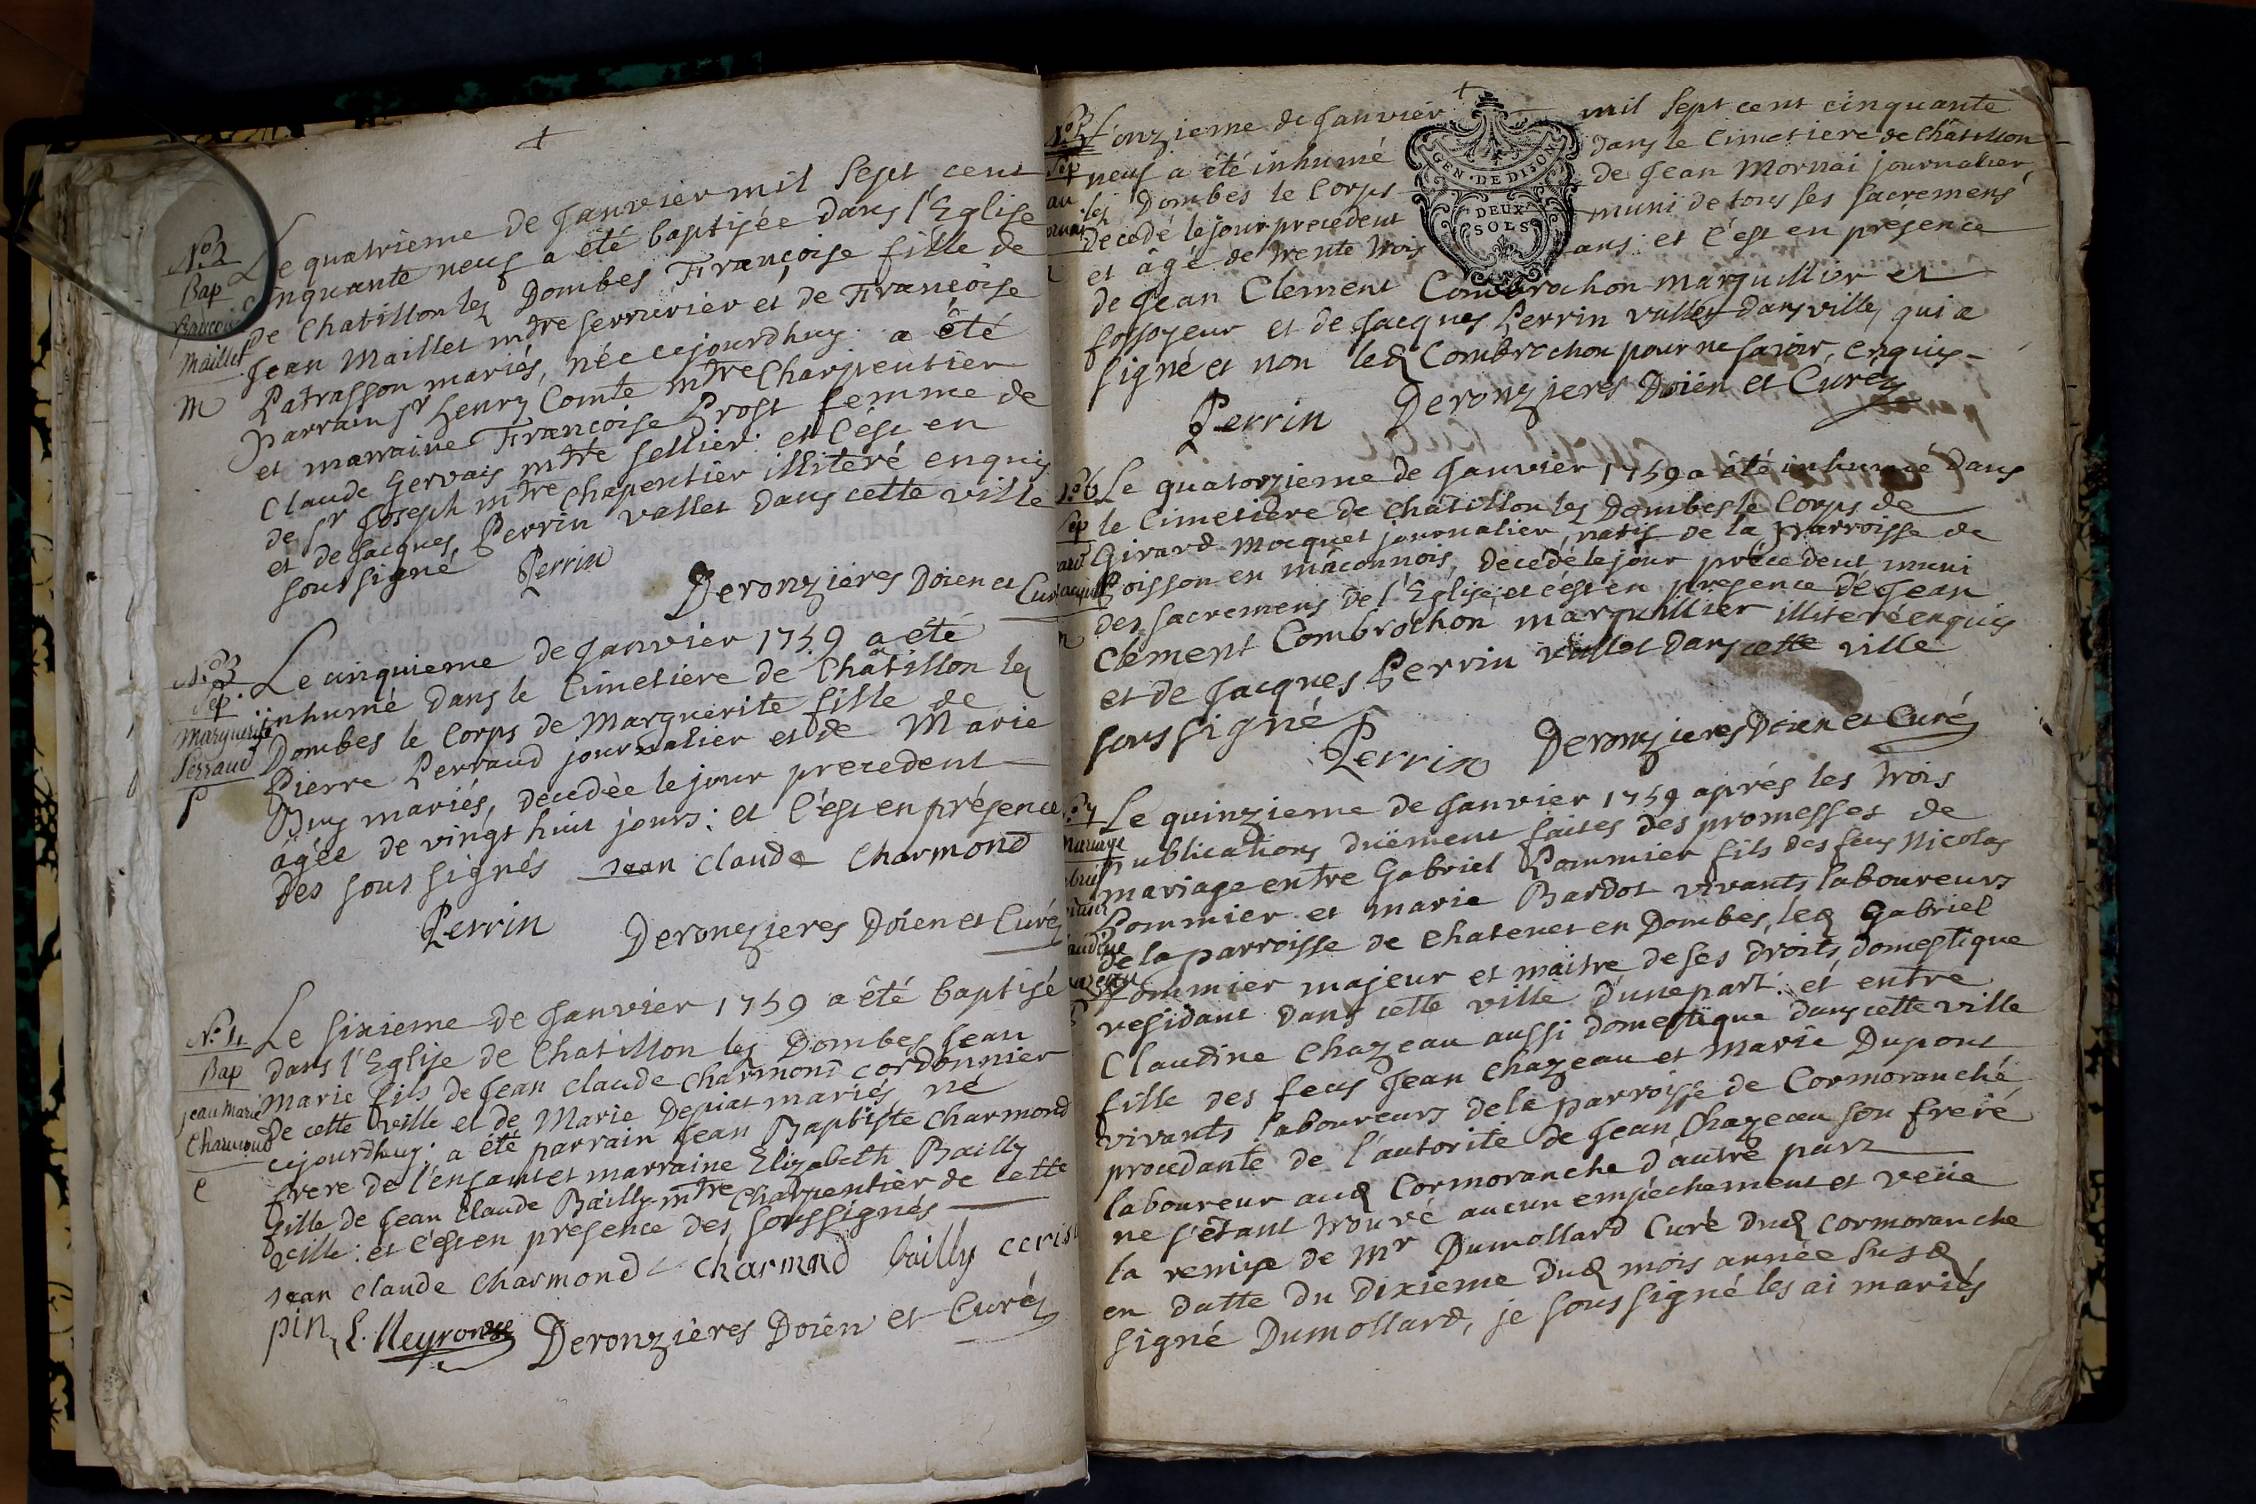 +
N.º 2
Bap
françoise
Maillet
m
Le quatrieme de Janvier mil sept cent
cinquante neuf a été baptisée dans l'Eglise
de Chatillon lez Dombes Françoise fille de
Jean Maillet mtre serrurier et de Françoise
Patrasson mariés, née cejourdhuy. a été
parrain Sr henry Comte mtre Charpentier
et marraine Françoise Prost femme de
Claude Gervais mtre sellier. et c'est en
de Sr Joseph mtre Chapentier illiteré enquis
et de Jacques Perrin vallet dans cette ville
soussigné
Perrin
Deronzieres Doien et Curé
N.º 3
Sep.
Marguerite
Perraud
P
Le cinquieme de Janvier 1759 a été
inhumé dans le Cimetiere de Châtillon lez
Dombes le Corps de Marguerite fille de
Pierre Perraud journalier et de Marie
Buy mariés, decedée le jour precedent
âgée de vingt huit jours: et c'est en présence
des soussignés Jean claude Charmond
Perrin Deronzieres Doien et Curé
N.º 4
Bap
Jean Marie
Charmond
C
Le sixieme de Janvier 1759 a été baptisé
dans l'Eglise de Chatillon lez Dombes Jean
Marie fils de Jean Claude Charmond cordonnier
de cette ville et de Marie Depiat mariés, né
cejourdhuy. a été parrain Jean Baptiste Charmond
frere de l'enfant et marraine Elizabeth Bailly
fille de Jean Claude Bailly mtre Charpentier de cette
ville: et c'est en presence des soussignés
Jean Claude Charmond charmnd bailly
pin Deronzières Doien et Curé
+
GEN. DE DIJON
DEUX
SOLS
L'onzieme de Janvier mil sept cent cinquante
neuf a été inhumé dans le Cimetiere de Châtillon
lez Dombes le Corps de Jean Mornai journalier
decedé le jour precedent muni de tous ses sacremens
et âgé de trente trois ans: et c'est en presence
de Jean Clement Combrochon marguillier et
fossoyeur et de Jacques Perrin vallet dans ville, qui a
signé et non led Combrochon pour ne savoir, enquis
Perrin Deronzieres Doien et Curé
N.º 6
Sep
Le quatorzieme de Janvier 1759 a été inhumé dans
le Cimetiere de Châtillon lez Dombes le Corps de
Girard Mocquet journalier, natif de la Parroisse de
Poisson en mâconnois, decedé le jour précedent muni
des sacremens de l'Eglise, et c'est en presence de Jean
Clement Combrochon marguillier illiteré enquis
et de Jacques Perrin vallet dans cette ville
soussigné
Perrin Deronzieres Doien et Curé
N.º 7
Mariage
Le quinzieme de Janvier 1759 aprés les trois
publications duëment faites des promesses de
mariage entre Gabriel Pommier fils des feus Nicolas
Pommier et marie Bardot vivants laboureurs
de la parroisse de Chatenet en Dombes, led Gabriel
Pommier majeur et maitre de ses droits, domestique
residant dans cette ville d'une part: et entre
Claudine Chazeau aussi domestique dans cette ville
fille des feus Jean Chazeau et Marie Dupont
vivants laboureurs de la parroisse de Cormoranche
procedante de l'autorité de Jean Chazeau son frere
laboureur aud Cormoranche d'autre part
ne s'étant trouvé aucun empéchement et veüe
la remise de Mr Dumollard Curé dud Cormoranche
en datte du dixieme dud mois année susd
signé Dumollard, je soussigné les ai mariés